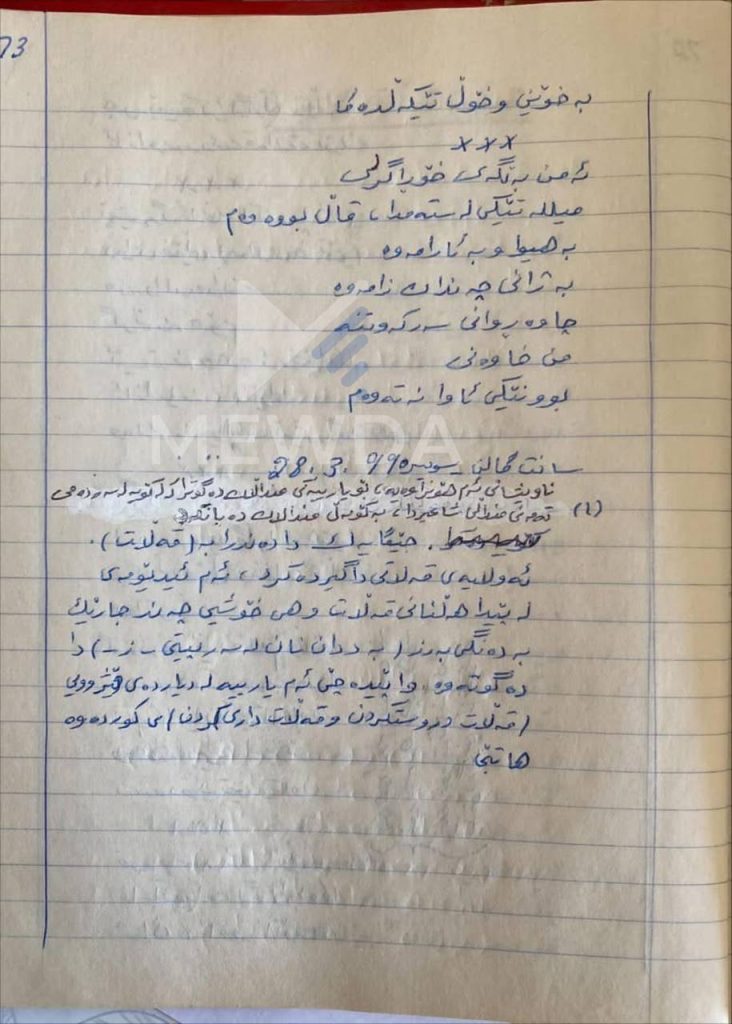 73
بە خۆین و خۆڵ تێکەڵدە کا
×××
ئەمن بەنگەی خۆڕاگری
میللە تێکی لە ستە مدا، قاڵ بووە وەم
بە هیوا و بە ئارامەوە
بە ژانی چە ندان زامەوە
چاوە ڕوانی سەرکەوتنە
من خاوەنی
بوونێکی ئاوا نە تەوەم
MEWDA
سانت گالن سویس 28.3.99
ناونیشانی ئەم هۆنراوەیە، بۆ یارییەکی منداڵان دەگوترا کە لە کۆیە لە سەردەمی
(١) تەمەنی منداڵی شاعیردا، بە کۆمەڵ منداڵان دە یانکرد
جێگا یەک دادەندرا بە (قەڵات).
ئەولایەی قەڵاتی داگیردەکرد، ئەم ئیدیۆمەی
لە پێدا هەڵنانی قەڵات وهی خۆشیی چە ند جارێک
بە دەنگی بەرز (بە ددان نان لە سەر بیتی - ز -) دا
دەگوتەوە. وا پێدەچێ ئەم یارییە لە دیاردەی مێژوویی
(قەڵات دروستکردن و قەڵات داری کردن) ی کوردەوە
هاتبێ